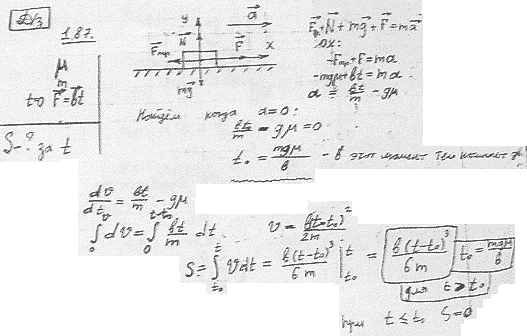 Д/з
1.87.
μ
m
t=0 F⃗=b⃗t
S-? за t
y
a⃗
N⃗
F⃗тр
F⃗
x
mg⃗
F⃗тр+N⃗+mg⃗+F⃗=ma⃗
ox:
-Fтр+F=ma
-mgμ+bt=ma
a = bt/m - gμ
Найдём когда a=0:
bt₀/m - gμ=0
t₀ = mgμ/b - в этот момент тело начнает
dv/dt = bt/m - gμ
∫₀ᵛ dv = ∫₀ᵗ⁻ᵗ⁰ bt/m dt
v = b(t-t₀)²/2m
S = ∫ₜ₀ᵗ vdt = b(t-t₀)³/6m |ₜ₀ᵗ = b(t-t₀)³/6m
t₀ = mgμ/b
для t > t₀
при t ≤ t₀ S=0